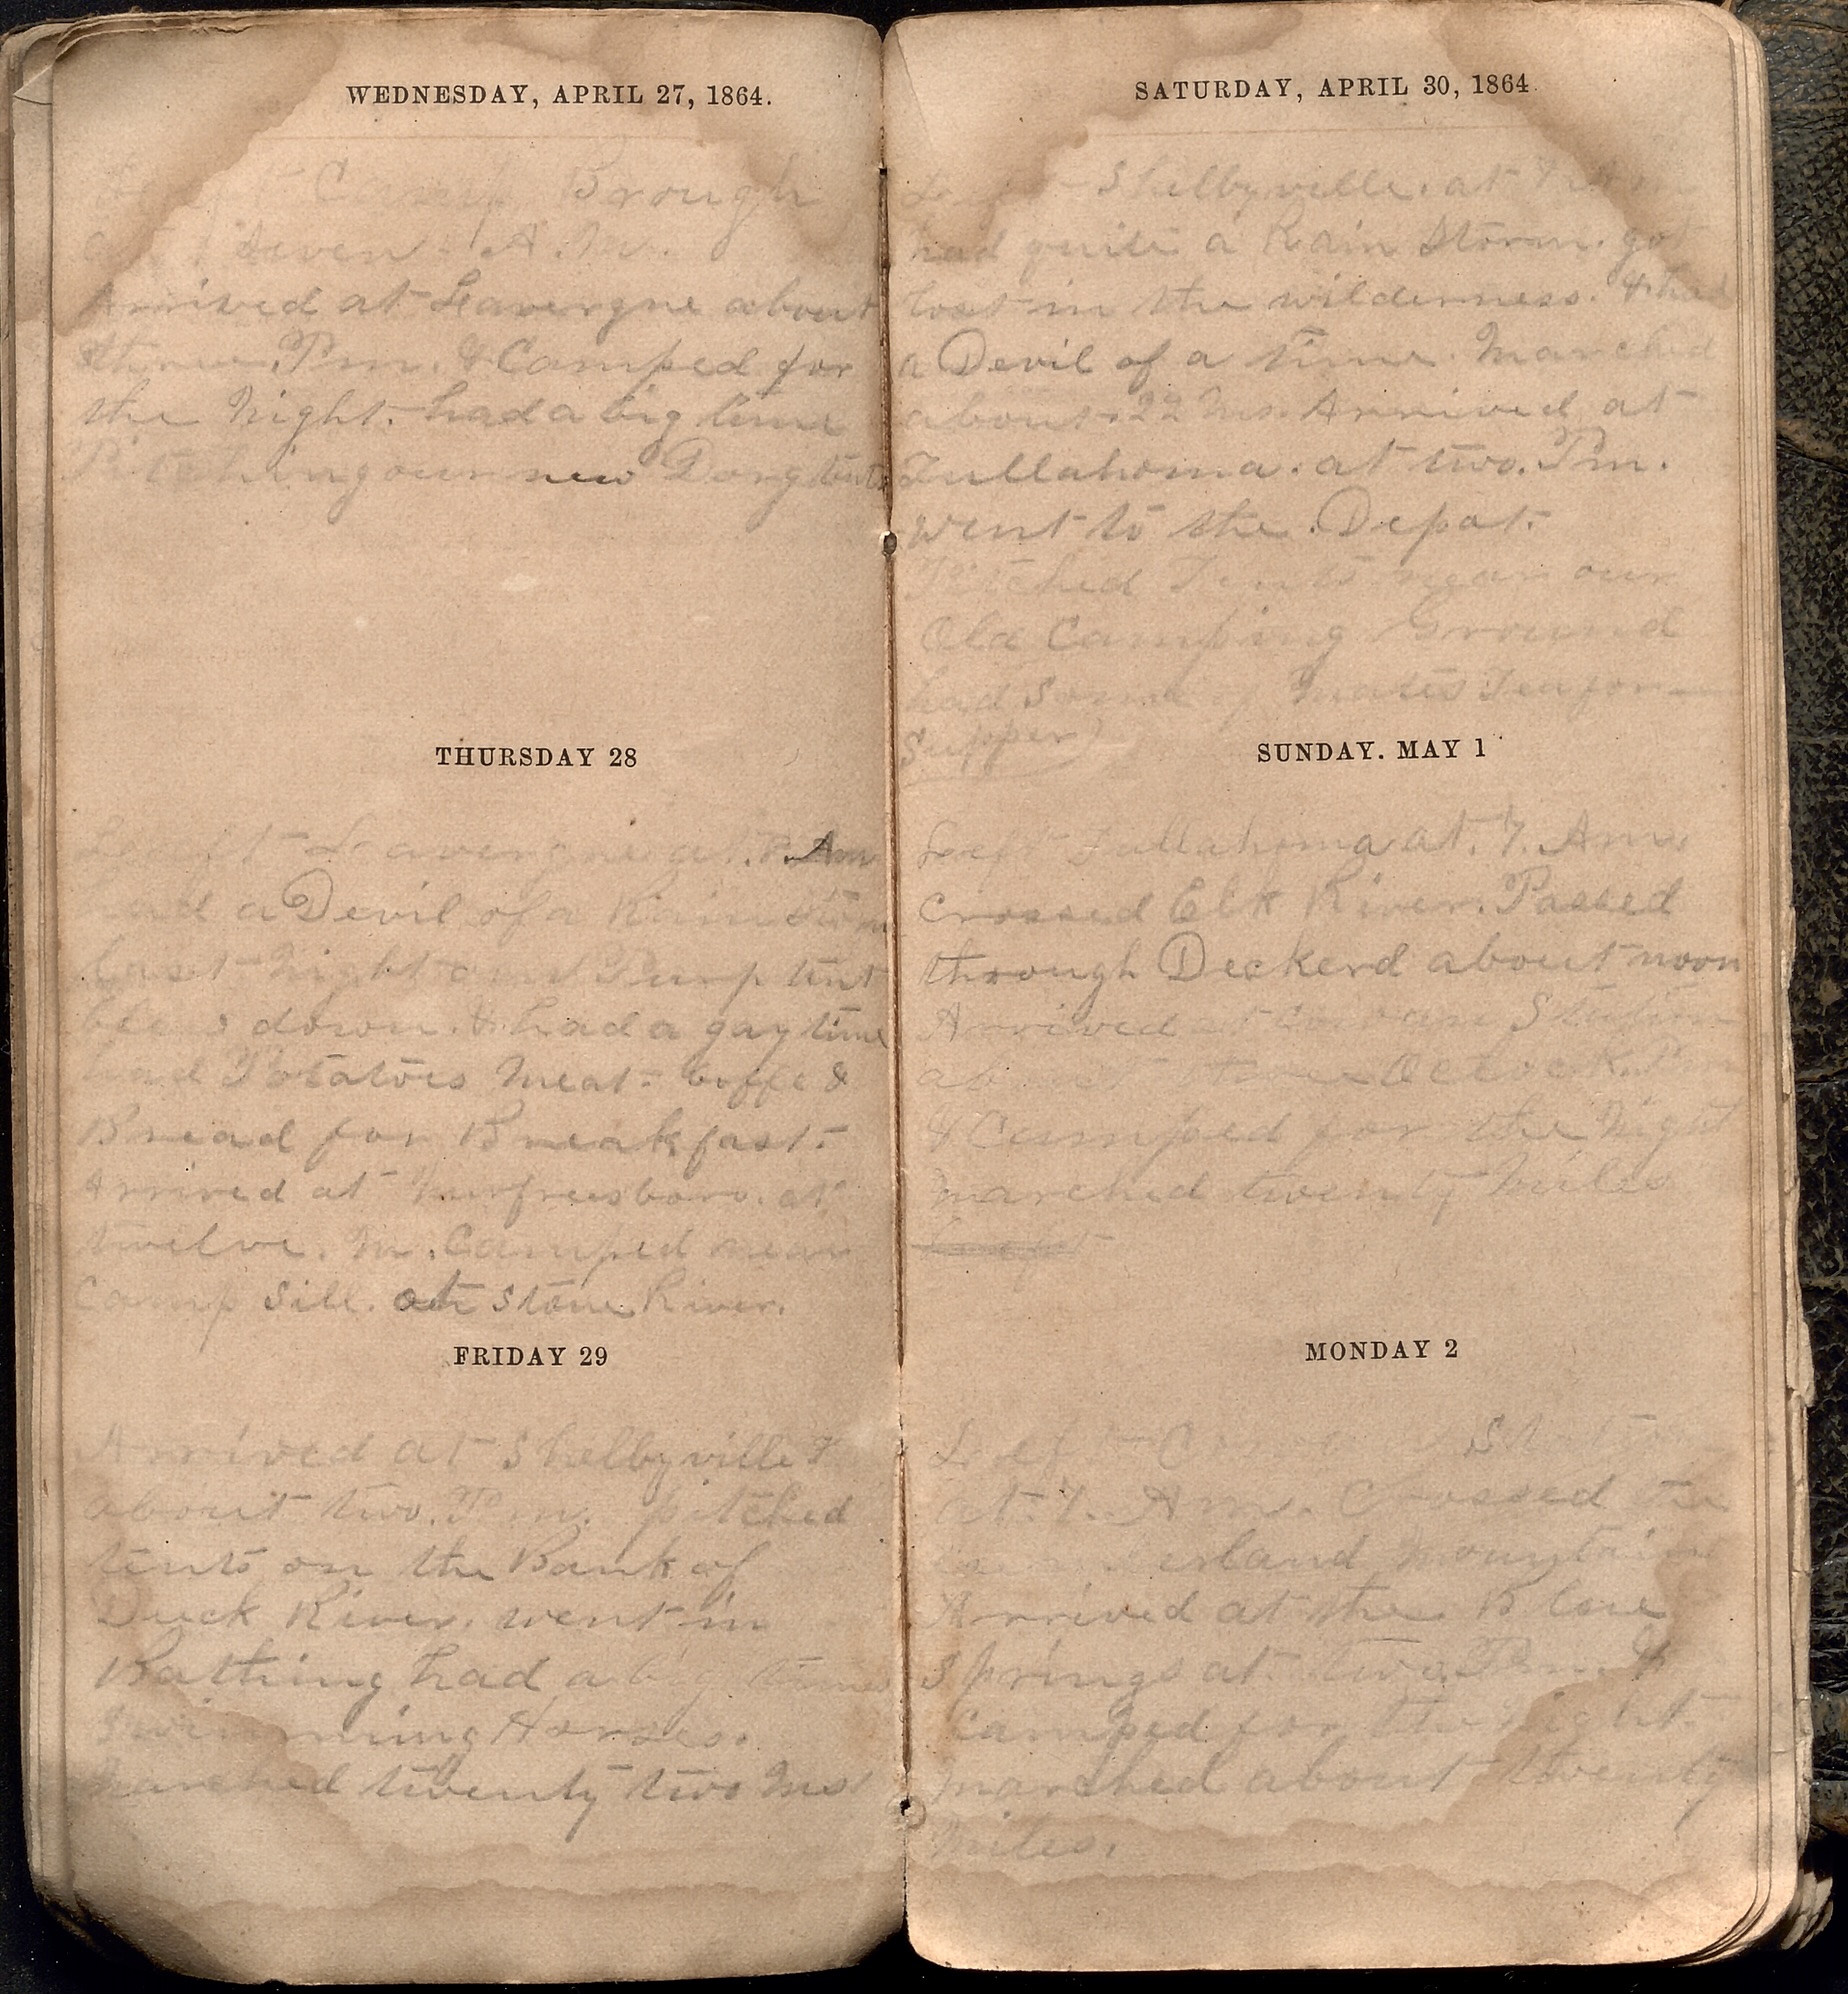 WEDNESDAY, APRIL 27, 1864.
Left Camp Brough
at Seven A.M.
Arrived at Lavergne about
three. Pm. & Camped for
the Night. had a big time
Pitching our new Dorg tents
THURSDAY 28
Left Lavergne at 7. Am
had a Devil of a Rain Storm
last Night our Purp tent
bled down. & had a gay time
had Potatoes Meat- Coffe &
Bread for Breakfast.
Arrived at Murfreesboro. at
twelve. M. Camped near
Camp Sill. at Stone River.
FRIDAY 29
Arrived at Shelbyville
about two. Pm. pitched
tents on the Bank of
Duck River. went in
Bathing had a big time
Swimming Horses.
Marched twenty two Ms
SATURDAY, APRIL 30, 1864.
Left Shelbyville. at 7 Am
had quite a Rain Storm. got
lost in the wilderness. & had
a Devil of a time. Marched
about 22 Ms. Arrived at
Tullahoma. at two. Pm.
went to the Depot.
Pitched Tents near our
Old Camping Ground
had Some of Mates Tea for
Supper
SUNDAY. MAY 1
Left Tullahoma at. 7. Am.
Crossed Elk River. Passed
through Deckerd about noon
Arrived at Cowan Station
about Oclock. Pm
& Camped for the Night
Marched twenty Miles
MONDAY 2
Left Cowan Station
at. 7. Am. Crossed the
Cumberland Mountains
Arrived at the Blue
Springs at. two. Pm. &
Camped for the Night.
Marched about twenty
Miles.